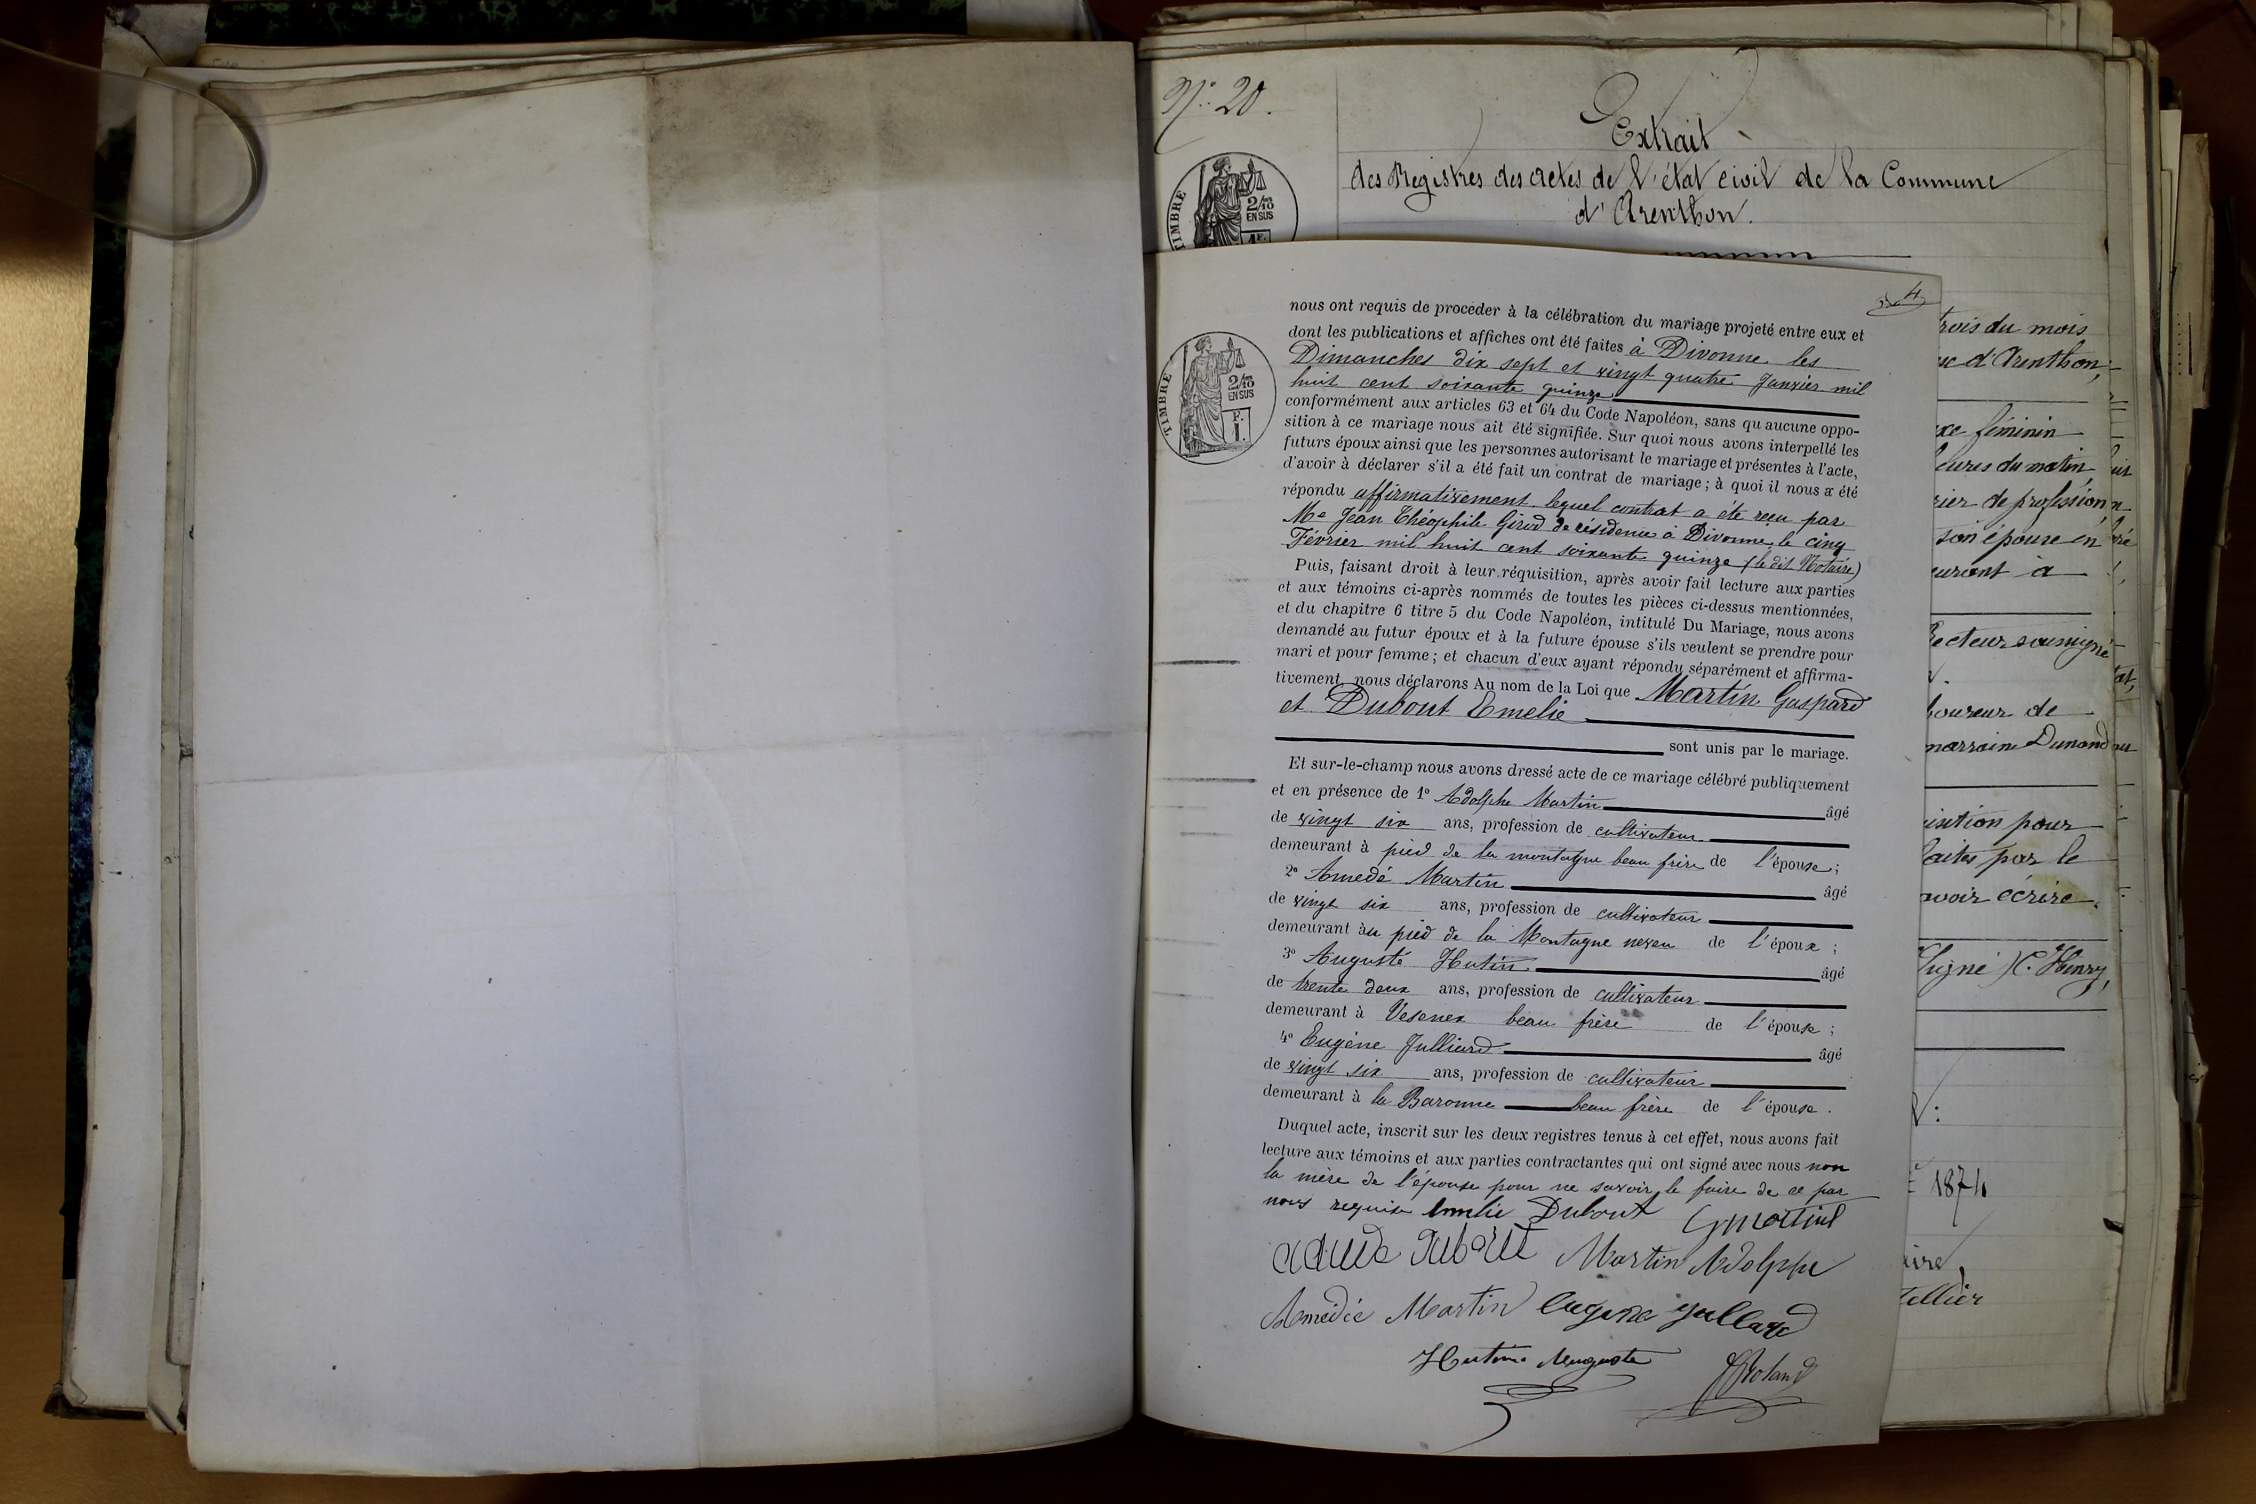 N° 20.
Extrait
des Registres des actes de l'état civil de la Commune
d'Arenthon.
TIMBRE
2/10
EN SUS
1F.
4
nous ont requis de procéder à la célébration du mariage projeté entre eux et
dont les publications et affiches ont été faites à Divonne les
Dimanches dix sept et vingt quatre Janvier mil
huit cent soixante quinze
conformément aux articles 63 et 64 du Code Napoléon, sans qu'aucune oppo-
sition à ce mariage nous ait été signifiée. Sur quoi nous avons interpellé les
futurs époux ainsi que les personnes autorisant le mariage et présentes à l'acte,
d'avoir à déclarer s'il a été fait un contrat de mariage ; à quoi il nous a été
répondu affirmativement lequel contrat a été reçu par
Me Jean Théophile Girod de résidence à Divonne le cinq
Février mil huit cent soixante quinze (le dit Notaire)
TIMBRE
2/10
EN SUS
F.
1.
Puis, faisant droit à leur réquisition, après avoir fait lecture aux parties
et aux témoins ci-après nommés de toutes les pièces ci-dessus mentionnées,
et du chapitre 6 titre 5 du Code Napoléon, intitulé Du Mariage, nous avons
demandé au futur époux et à la future épouse s'ils veulent se prendre pour
mari et pour femme ; et chacun d'eux ayant répondu séparément et affirma-
tivement, nous déclarons Au nom de la Loi que Martin Gaspard
et Dubout Emelie
sont unis par le mariage.
Et sur-le-champ nous avons dressé acte de ce mariage célébré publiquement
et en présence de 1° Adolphe Martin âgé
de vingt six ans, profession de cultivateur
demeurant à pied de la montagne beau frère de l'épouse ;
2° Amedé Martin âgé
de vingt six ans, profession de cultivateur
demeurant àu pied de la Montagne neveu de l'époux ;
3° Auguste Hutin âgé
de trente deux ans, profession de cultivateur
demeurant à Vesenex beau frère de l'épouse ;
4° Eugène Julliard âgé
de vingt six ans, profession de cultivateur
demeurant à la Baronne beau frère de l'épouse .
Duquel acte, inscrit sur les deux registres tenus à cet effet, nous avons fait
lecture aux témoins et aux parties contractantes qui ont signé avec nous non
la mère de l'épouse pour ne savoir le faire de ce par
nous requise Emelie Dubout G Martin
Dubout Martin Adolphe
Amédée Martin Eugene Julliard
Hutin Auguste Roland
trois du mois
d'Arenthon,
féminin
heures du matin,
de profession
son épouse en
à
soussigné
de
marraine Dunand
pour
faites par le
avoir écrire.
Signé C. Henry,
1874